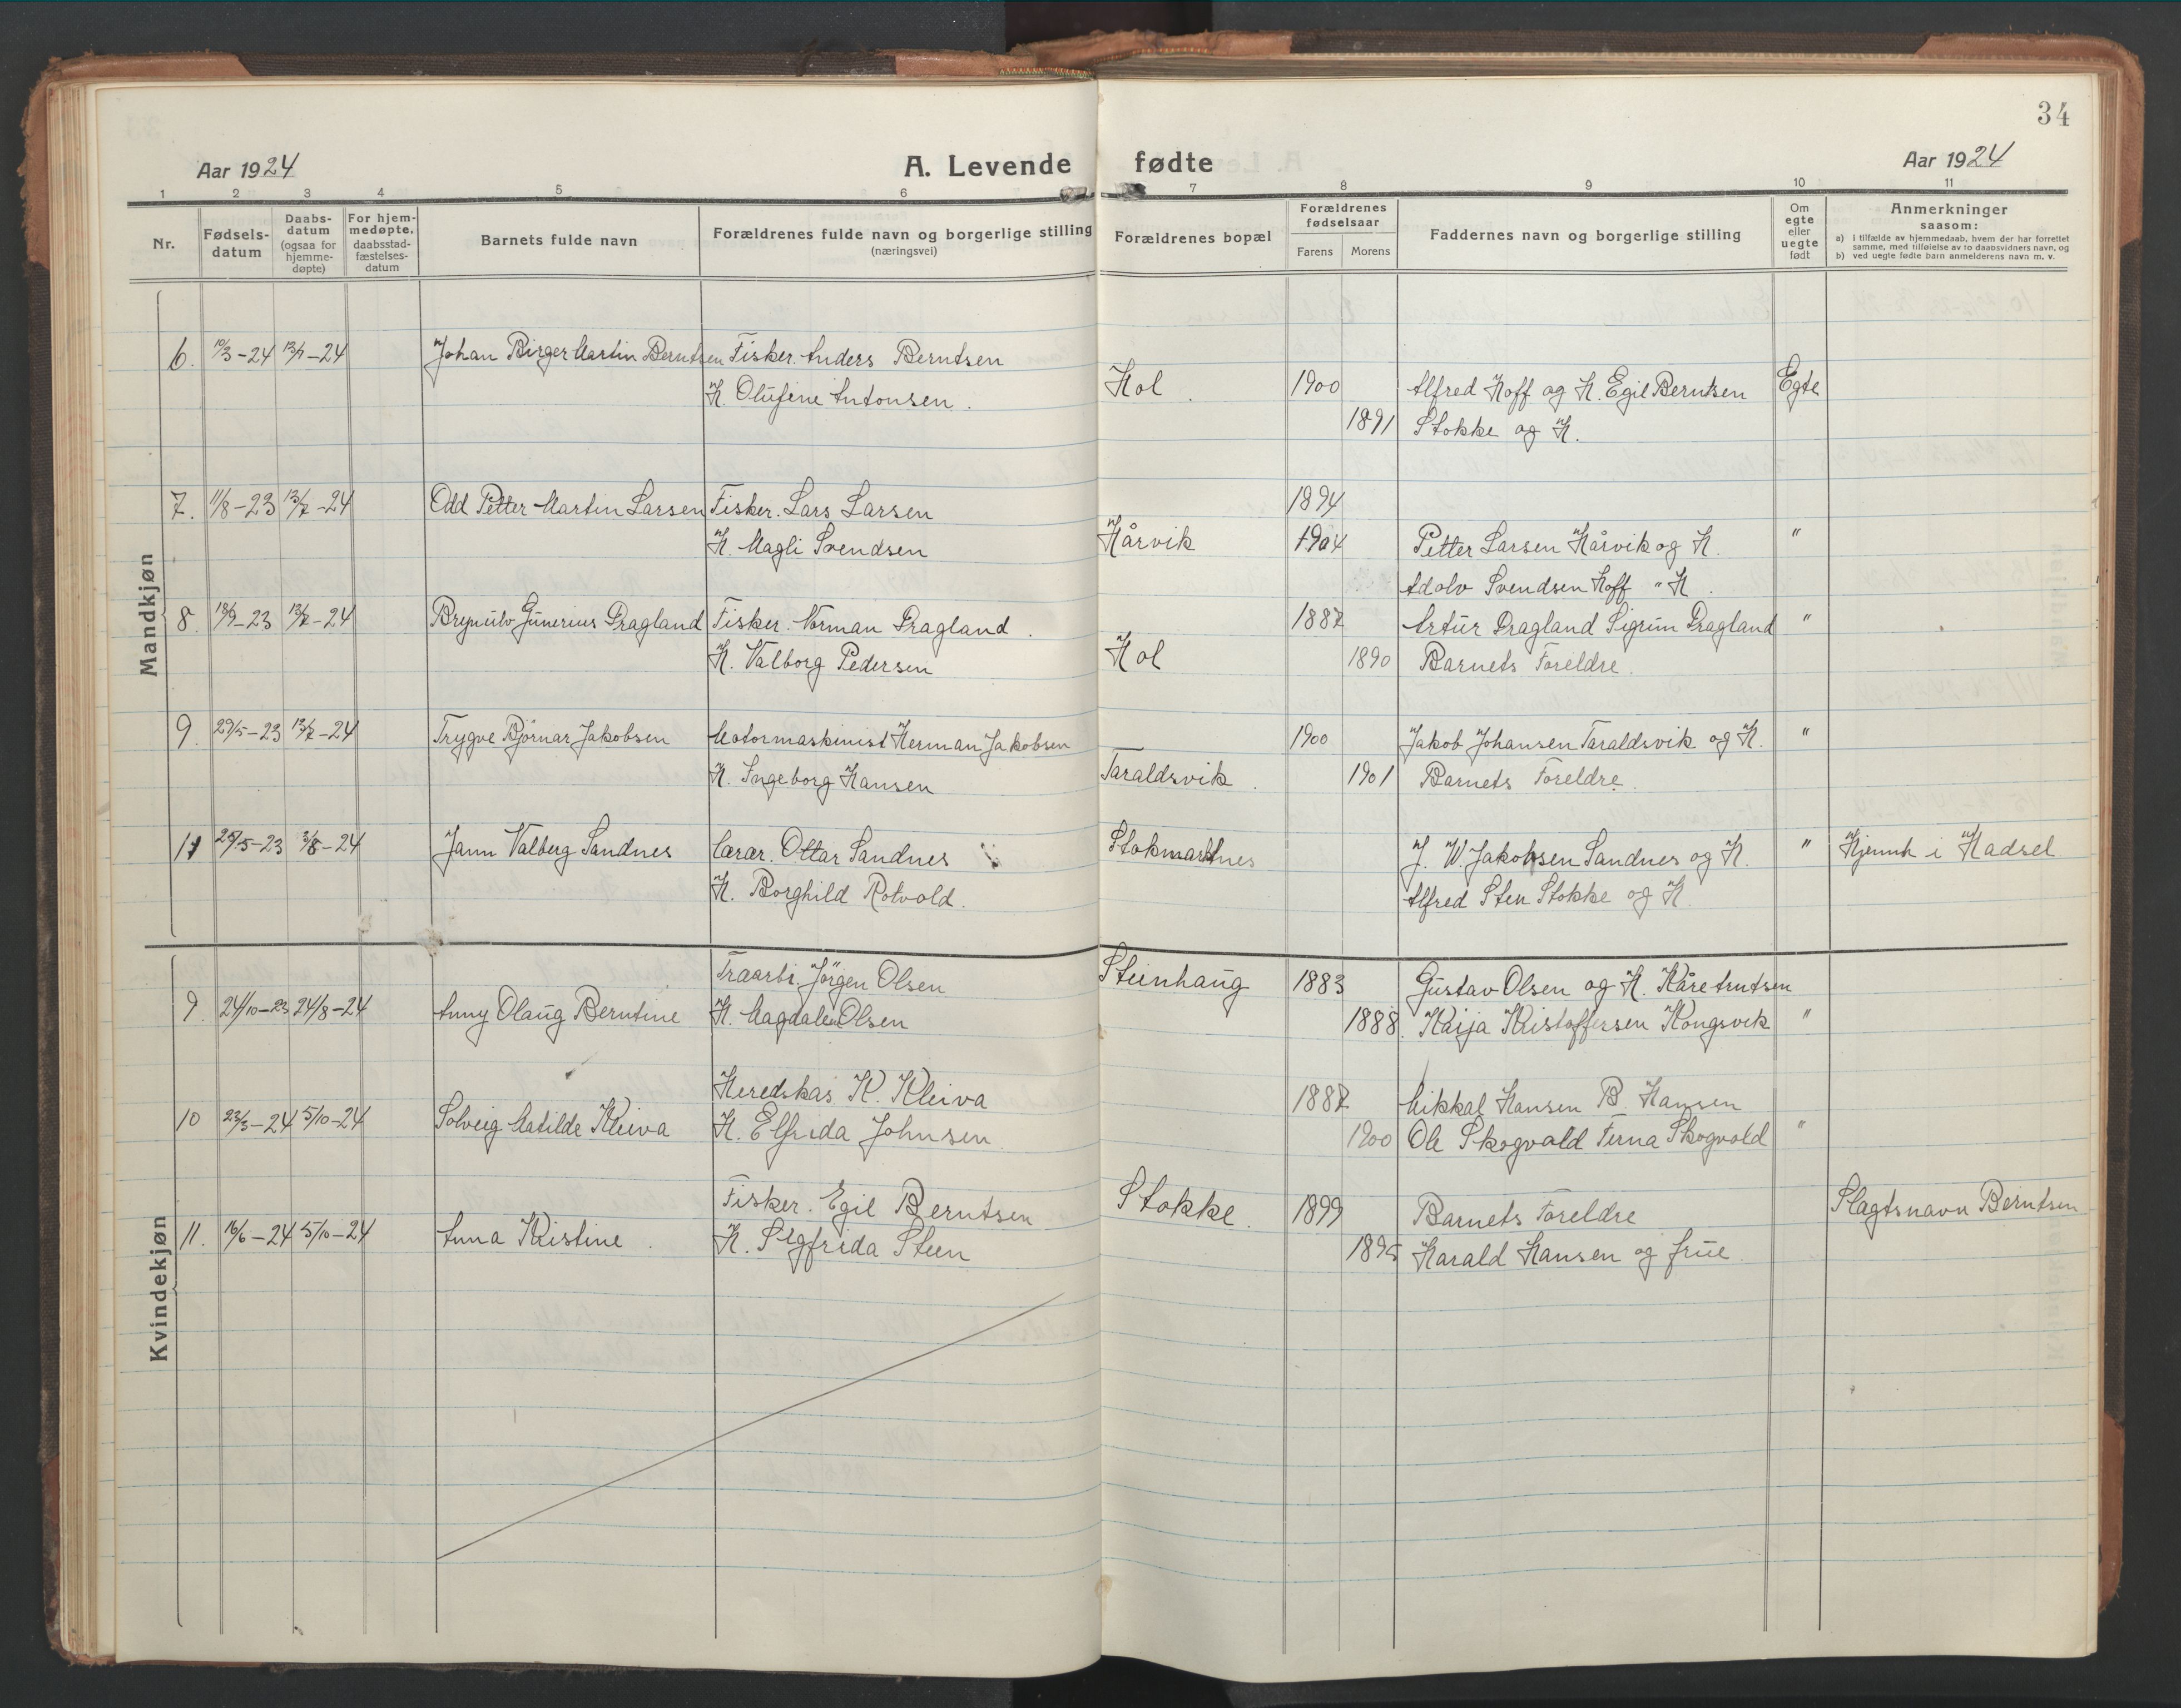 34
Aar 1924
A. Levende fødte
Aar 1924
1 2 3 4 5 6 7 8 9 10 11
Nr.
Fødsels-
datum
Daabs-
datum
(ogsaa for
hjemme-
døpte)
For hjem-
medøpte,
daabsstad-
fæstelses-
datum
Barnets fulde navn
Forældrenes fulde navn og borgerlige stilling
(næringsvei)
Forældrenes bopæl
Forældrenes
fødselsaar
Farens
Morens
Faddernes navn og borgerlige stilling
Om
egte
eller
uegte
født
Anmerkninger
saasom:
a) i tilfælde av hjemmedaab, hvem der har forrettet
samme, med tilføielse av to daabsvidners navn, og
b) ved uegte fødte barn anmelderens navn m. v.
Mandkjøn
6. 10/3-24 13/7-24 Johan Birger Martin Berntsen Fisker. Anders Berntsen
H. Olufine Antonsen. Hol. 1900 Alfred Hoff og H. Egil Berntsen Egte
1891 Stokke og H.
7. 11/8-23 13/7-24 Odd Petter Martin Larsen Fisker. Lars Larsen 1894
H. Magli Svendsen Hårvik 1904 Petter Larsen Hårvik og H. "
Adolv Svendsen Hoff " H.
8. 18/9-23 13/7-24 Brynulv Gunerius Dragland Fisker. Norman Dragland. 1887 Artur Dragland Sigrun Dragland "
H. Valborg Pedersen Hol 1890 Barnets Foreldre.
9. 29/5-23 13/7-24 Trygve Bjørnar Jakobsen Motormaskinist Herman Jakobsen 1900 Jakob Johansen Taraldsvik og H. "
H. Ingeborg Hansen Taraldsvik. 1901 Barnets Foreldre.
11 25/5-23 3/8-24 Jann Valberg Sandnes Lærer. Ottar Sandnes Stokmarknes J. W. Jakobsen Sandnes og H. " Hjemh i Hadsel
H. Borghild Rotvold. Alfred Sten Stokke og H.
Kvindekjøn
Traarb. Jörgen Olsen Steinhaug 1883 Gustav Olsen og H. Kåre Arntsen
9. 24/10-23 24/8-24 Anny Olaug Berntine H. Magdalen Olsen 1888. Kaija Kristoffersen Kongsvik "
Heredskas K. Kleiva 1887 Mikkal Hansen B. Hansen
10 23/3-24 5/10-24 Solveig Matilde Kleiva H. Elfrida Johnsen 1900 Ole Skogvold Ferna Skogvold "
Fisker. Egil Berntsen Stokke. 1899 Barnets Foreldre Slagtsnavn Berntsen
11. 16/6-24 5/10-24 Anna Kristine. H. Sigfrida Steen 1895 Harald Hansen og frue.